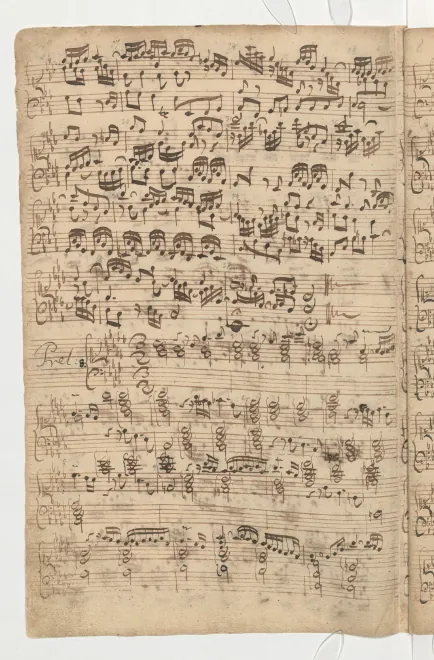 Prel. 8.